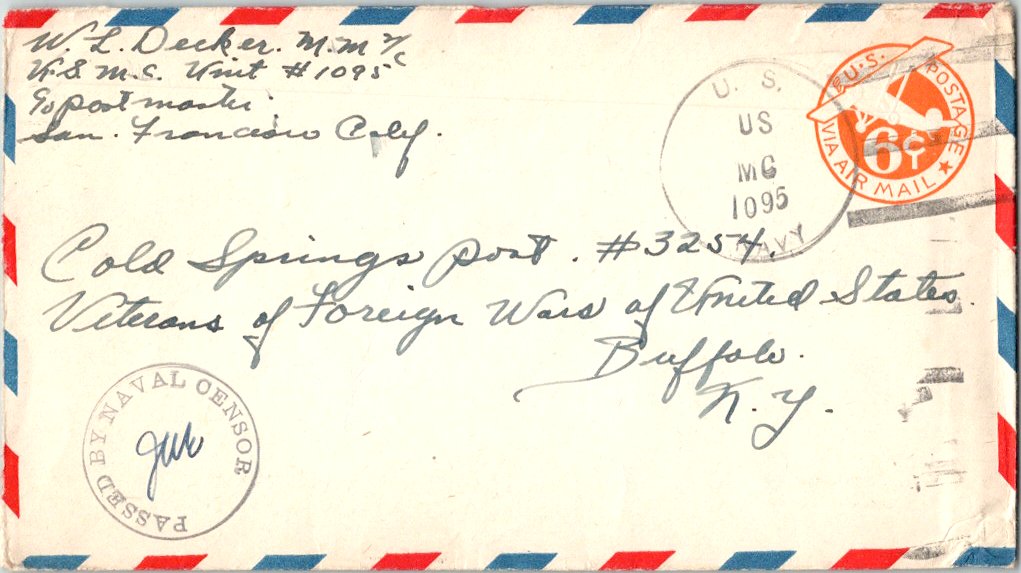 W. L. Decker. M.M 2/c
U.S.M.C. Unit #1095
c/o postmaster.
San. Francisco Calif.
U.S. POSTAGE
6¢
VIA AIR MAIL
U. S.
US
MC
1095
NAVY
Cold Springs post. #3254.
Veterans of Foreign Wars of United States.
Buffalo.
N. Y.
PASSED BY NAVAL CENSOR